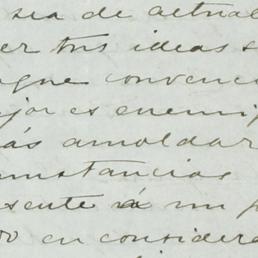 sea de actual
er tus ideas s
ague convenc
jor es enemig
ás amoldar
unstancias
esente á un p
do en considera